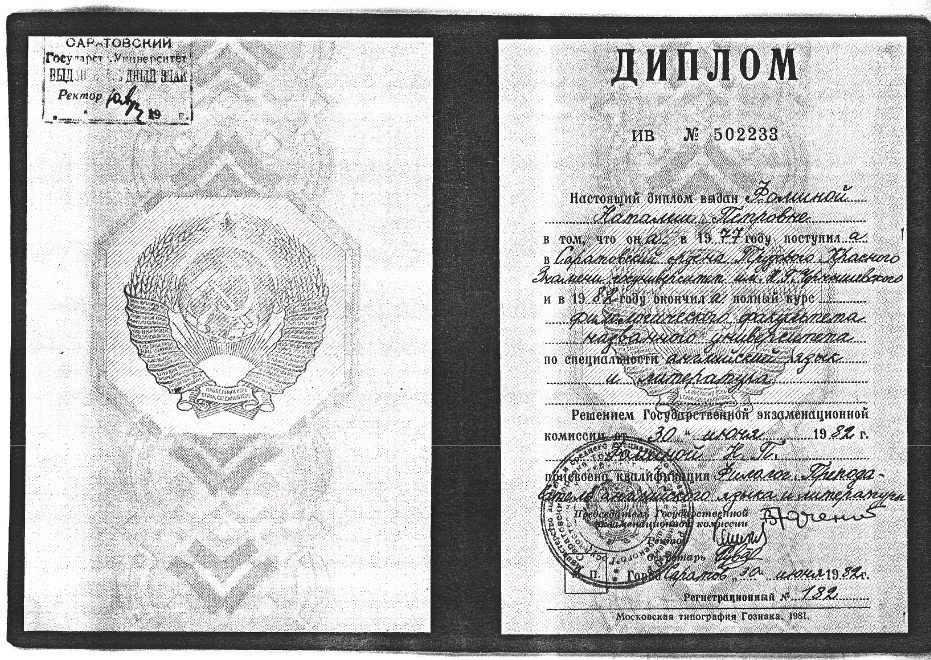 САРАТОВСКИЙ
Государст Университет
ВЫДАН НАГРУДНЫЙ ЗНАК
Ректор
19 г.
ДИПЛОМ
ИВ № 502233
Настоящий диплом выдан Фоминой
Наталии Петровне
в том, что он а в 19 77 году поступил а
в Саратовский ордена Трудового Красного
Знамени госуниверситет им. Н.Г. Чернышевского
и в 19 82 году окончил а полный курс
филологического факультета
названного университета
по специальности английский язык
и литература
Решением Государственной экзаменационной
комиссии от „ 30 “ июня 19 82 г.
Фоминой Н. П.
присвоена квалификация Филолог. Препода-
ватель английского языка и литературы
Председатель Государственной
экзаменационной комиссии
Ректор
Секретарь
М. П. Город Саратов „ 30 июня 19 82 г.
Регистрационный № 132
Московская типография Гознака. 1981.